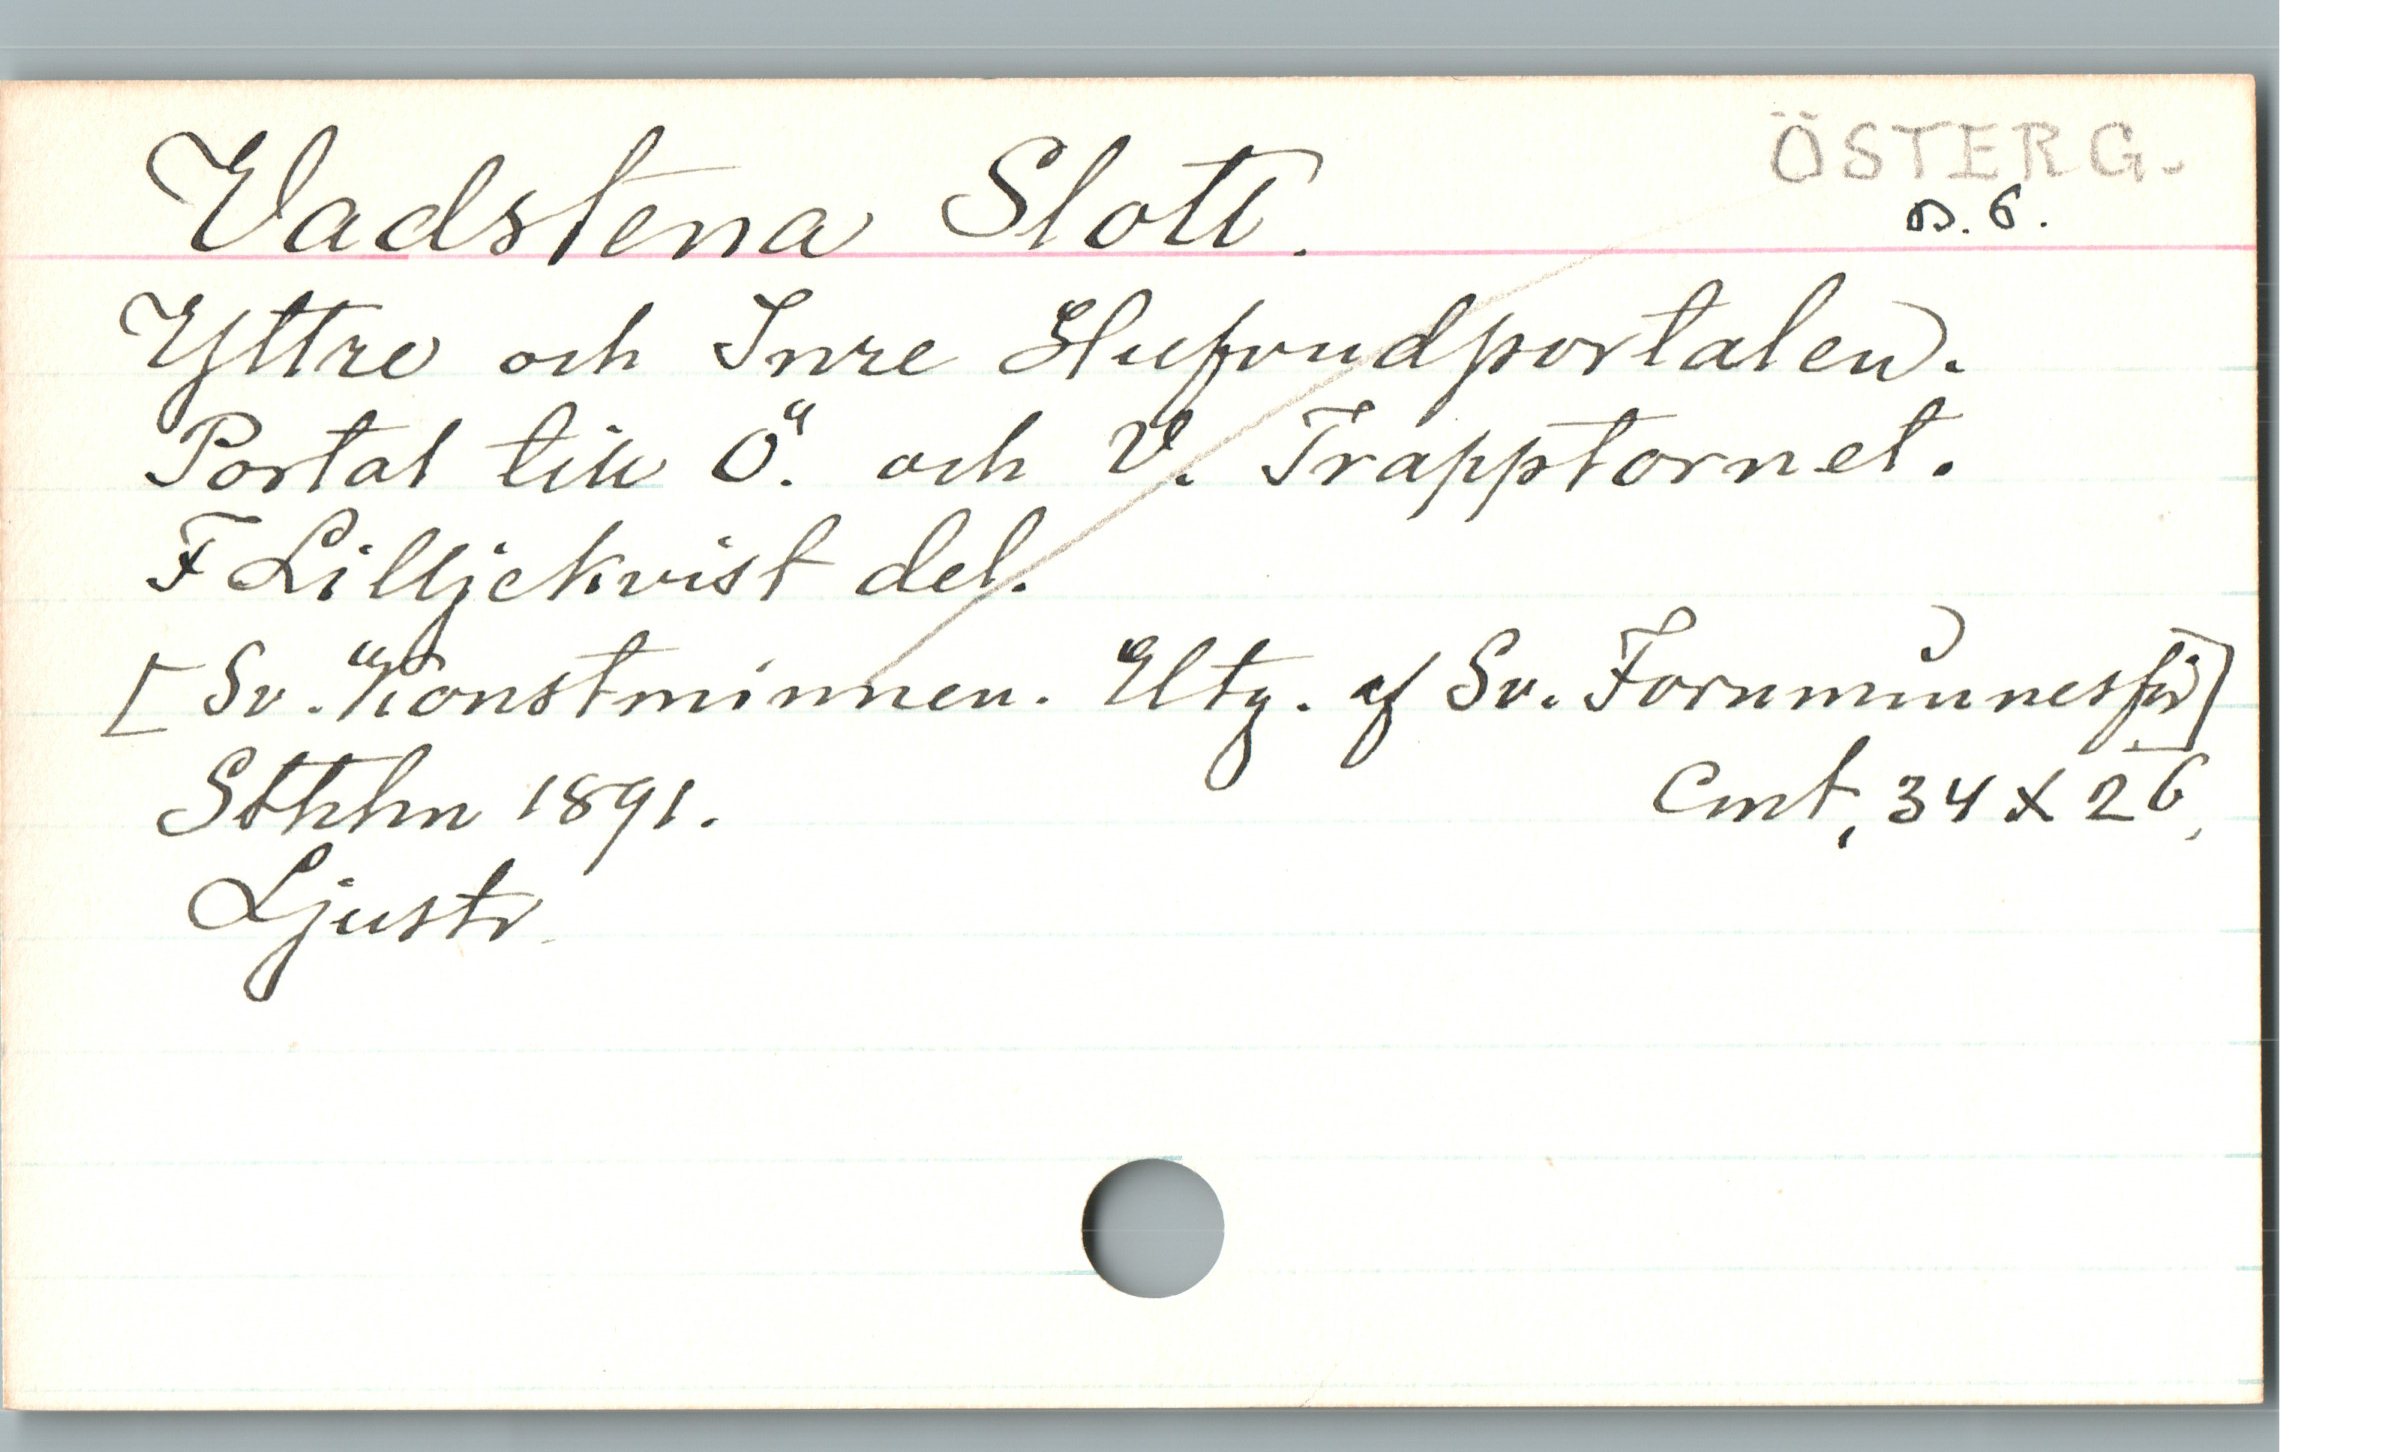 ÖSTERG.
Vadstena Slott.
s. 6.
Yttre och Inre Hufvudportalen.
Portal till Ö. och V. Trapptornet.
F Lilljekvist del.
[Sv. Konstminnen. Utg. af Sv. Fornminnesför]
Sthlm 1891. Cmt, 34 x 26,
Ljustr.